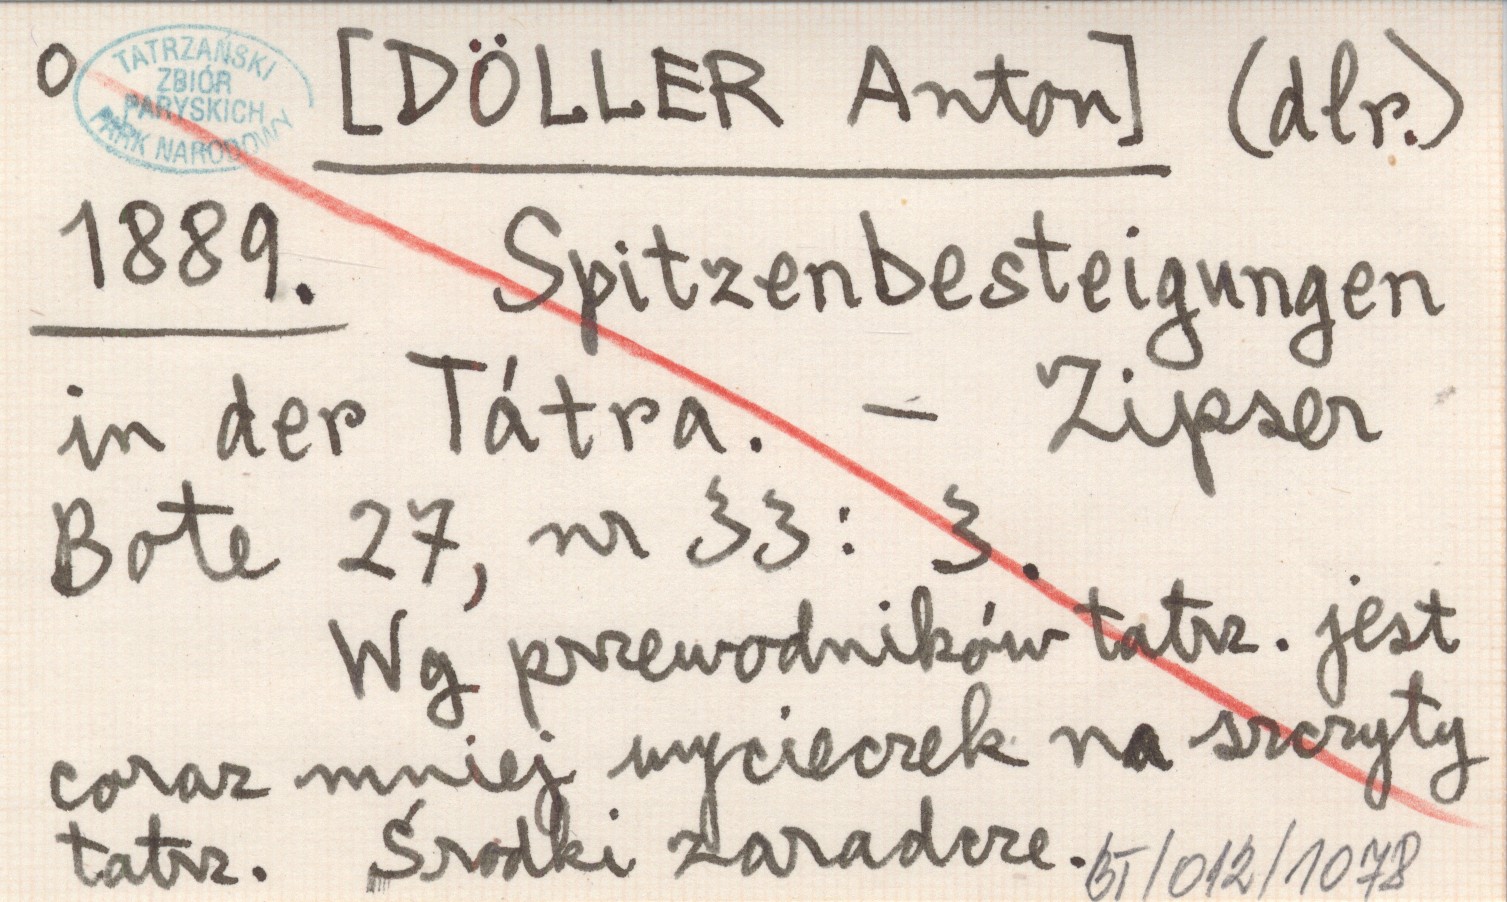 o [DÖLLER Anton] (dlr.)
TATRZAŃSKI
ZBIÓR
PARYSKICH
PARK NARODOWY
1889. Spitzenbesteigungen
in der Tátra. – Zipser
Bote 27, nr 33: 3.
Wg przewodników tatrz. jest
coraz mniej wycieczek na szczyty
tatrz. Środki zaradcze.
BT/012/1078